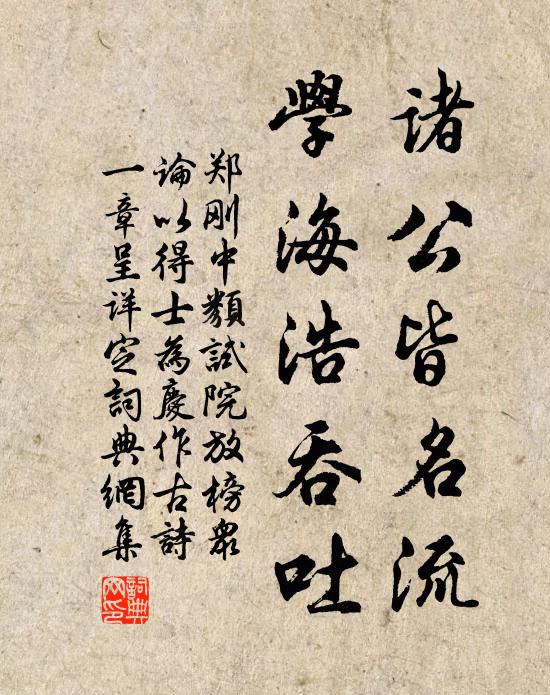 诸公皆名流
學海浩吞吐
郑刚中類試院放榜衆
論以得士為慶作古詩
一章呈详定詞典網集
詞典網印